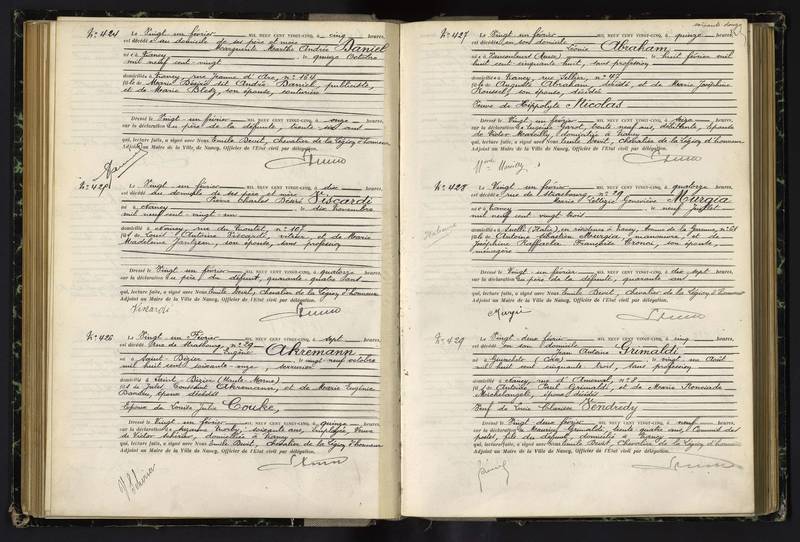 N° 424 Le Vingt un février MIL NEUF CENT VINGT-CINQ, à cinq heures,
est décédé au domicile de ses père et mère
Marguerite Marthe Andrée Daniel
né à Nancy le quinze Octobre
mil neuf cent vingt
domicilié à Nancy, rue Jeanne d'Arc, n° 164
fils de Marie Benoît André Daniel, publiciste,
et de Marie Bletz, son épouse, couturière
Dressé le Vingt un février MIL NEUF CENT VINGT-CINQ, à onze heures,
sur la déclaration du père de la défunte, trente six ans
qui, lecture faite, a signé avec Nous Emile Beuil, Chevalier de la Légion d'honneur
Adjoint au Maire de la Ville de Nancy, Officier de l'Etat civil par délégation.
Daniel
N° 425 Le Vingt un février MIL NEUF CENT VINGT-CINQ, à dix heures,
est décédé au domicile de ses père et mère
Pierre Charles Désiré Viscardi
né à Nancy le dix novembre
mil neuf cent vingt un
domicilié à Nancy, rue du Montet, n° 107
fils de Louis Antoine Viscardi, vitrier, et de Marie
Madeleine Jantzen, son épouse, sans profession
Dressé le Vingt un février MIL NEUF CENT VINGT-CINQ, à quatorze heures,
sur la déclaration du père du défunt, quarante quatre ans
qui, lecture faite, a signé avec Nous Emile Beuil, Chevalier de la Légion d'honneur
Adjoint au Maire de la Ville de Nancy, Officier de l'Etat civil par délégation.
Viscardi
N° 426 Le Vingt un Février MIL NEUF CENT VINGT-CINQ, à sept heures,
est décédé rue de Strasbourg, n° 29
Eugène Ahrremann
né à Saint-Dizier le vingt neuf octobre
mil huit cent soixante onze, serrurier
domicilié à Saint Dizier (Haute Marne)
fils de Jules Ahrremann, et de Marie Eugénie
époux décédés
Epoux de Louise Julie Couke,
Dressé le Vingt un février MIL NEUF CENT VINGT-CINQ, à quinze heures,
sur la déclaration de soixante ans, employée, Veuve
de Victor domiciliée à Nancy
qui, lecture faite, a signé avec Nous Emile Beuil, Chevalier de la Légion d'honneur
Adjoint au Maire de la Ville de Nancy, Officier de l'Etat civil par délégation.
soixante douze
N° 427 Le Vingt un février MIL NEUF CENT VINGT-CINQ, à quinze heures,
est décédée en son domicile
Léonie Abraham
née à Vaucouleurs (Meuse) le huit février mil
huit cent cinquante huit, sans profession
domiciliée à Nancy, rue Sellier, n° 47
fille de Auguste Abraham, décédé et de Marie Joséphine
Roussel, son épouse, décédée
Veuve de Hippolyte Nicolas
Dressé le Vingt un février MIL NEUF CENT VINGT-CINQ, à seize heures,
sur la déclaration de Eugénie trente neuf ans, débitante, épouse
de Victor domiciliée à Nancy
qui, lecture faite, a signé avec Nous Emile Beuil, Chevalier de la Légion d'honneur
Adjoint au Maire de la Ville de Nancy, Officier de l'Etat civil par délégation.
N° 428 Le Vingt un février MIL NEUF CENT VINGT-CINQ, à quatorze heures,
est décédée rue de Strasbourg, n° 29
Marie Geneviève Murgia
née à Nancy le neuf Juillet
mil neuf cent vingt trois
Italienne
(Italie), en résidence à Nancy, Avenue de la Garenne, n° 61
fille de Antoine Sébastien Murgia, manœuvre, et de
Joséphine Raffaella Françoise son épouse,
ménagère
Dressé le Vingt un février MIL NEUF CENT VINGT-CINQ, à dix sept heures,
sur la déclaration du père de la défunte, quarante ans
qui, lecture faite, a signé avec Nous Emile Beuil, Chevalier de la Légion d'honneur
Adjoint au Maire de la Ville de Nancy, Officier de l'Etat civil par délégation.
Murgia
N° 429 Le Vingt deux février MIL NEUF CENT VINGT-CINQ, à cinq heures,
est décédé en son domicile
Jean Antoine Grimaldi
né à le vingt un Août
mil huit cent cinquante trois, sans profession
domicilié à Nancy, rue d'Amerval, n° 8
fils de Antoine Paul Grimaldi, et de Marie
Michelangeli, époux décédés
Veuf de Louise Clarisse Vendredy
Dressé le Vingt deux février MIL NEUF CENT VINGT-CINQ, à neuf heures,
sur la déclaration de Maurice Grimaldi, trente quatre ans, Commis des
postes, fils du défunt, domicilié à Nancy
qui, lecture faite, a signé avec Nous Emile Beuil, Chevalier de la Légion d'honneur
Adjoint au Maire de la Ville de Nancy, Officier de l'Etat civil par délégation.